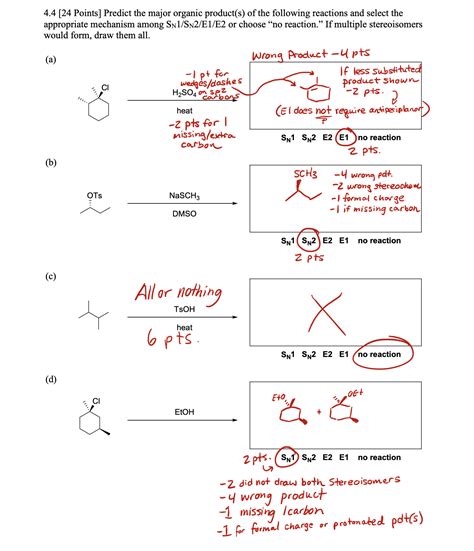 4.4 [24 Points] Predict the major organic product(s) of the following reactions and select the
appropriate mechanism among SN1/SN2/E1/E2 or choose “no reaction.” If multiple stereoisomers
would form, draw them all.
Wrong Product -4 pts
(a)
-1 pt for
wedges/dashes
on sp2
carbons
If less substituted
product shown
-2 pts.
Cl
H2SO4
heat
(E1 does not require antiperiplanar)
-2 pts for 1
missing/extra
carbon
SN1 SN2 E2 E1 no reaction
2 pts.
(b)
SCH3
-4 wrong pdt.
-2 wrong stereochem
-1 formal charge
-1 if missing carbon
OTs
NaSCH3
DMSO
SN1 SN2 E2 E1 no reaction
2 pts
(c)
All or nothing
TsOH
heat
6 pts.
SN1 SN2 E2 E1 no reaction
(d)
Cl
EtOH
EtO
+
OEt
2 pts. SN1 SN2 E2 E1 no reaction
-2 did not draw both stereoisomers
-4 wrong product
-1 missing /carbon
-1 for formal charge or protonated pdt(s)